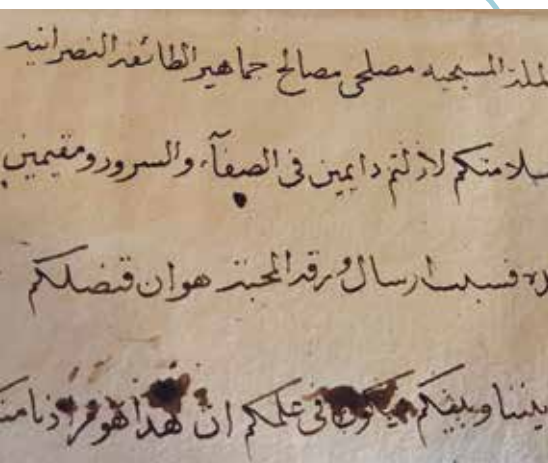 الملة المسيحيه مصلحى مصالح جماهير الطائفه النصرانيه
سلامتكم لازلتم دايمين فى الصفآء والسرور ومقيمين
فسبب ارسال ورقة المحبة هو ان قنصلكم
بيننا وبينكم يكون فى علمكم ان هذا هو مرادنا